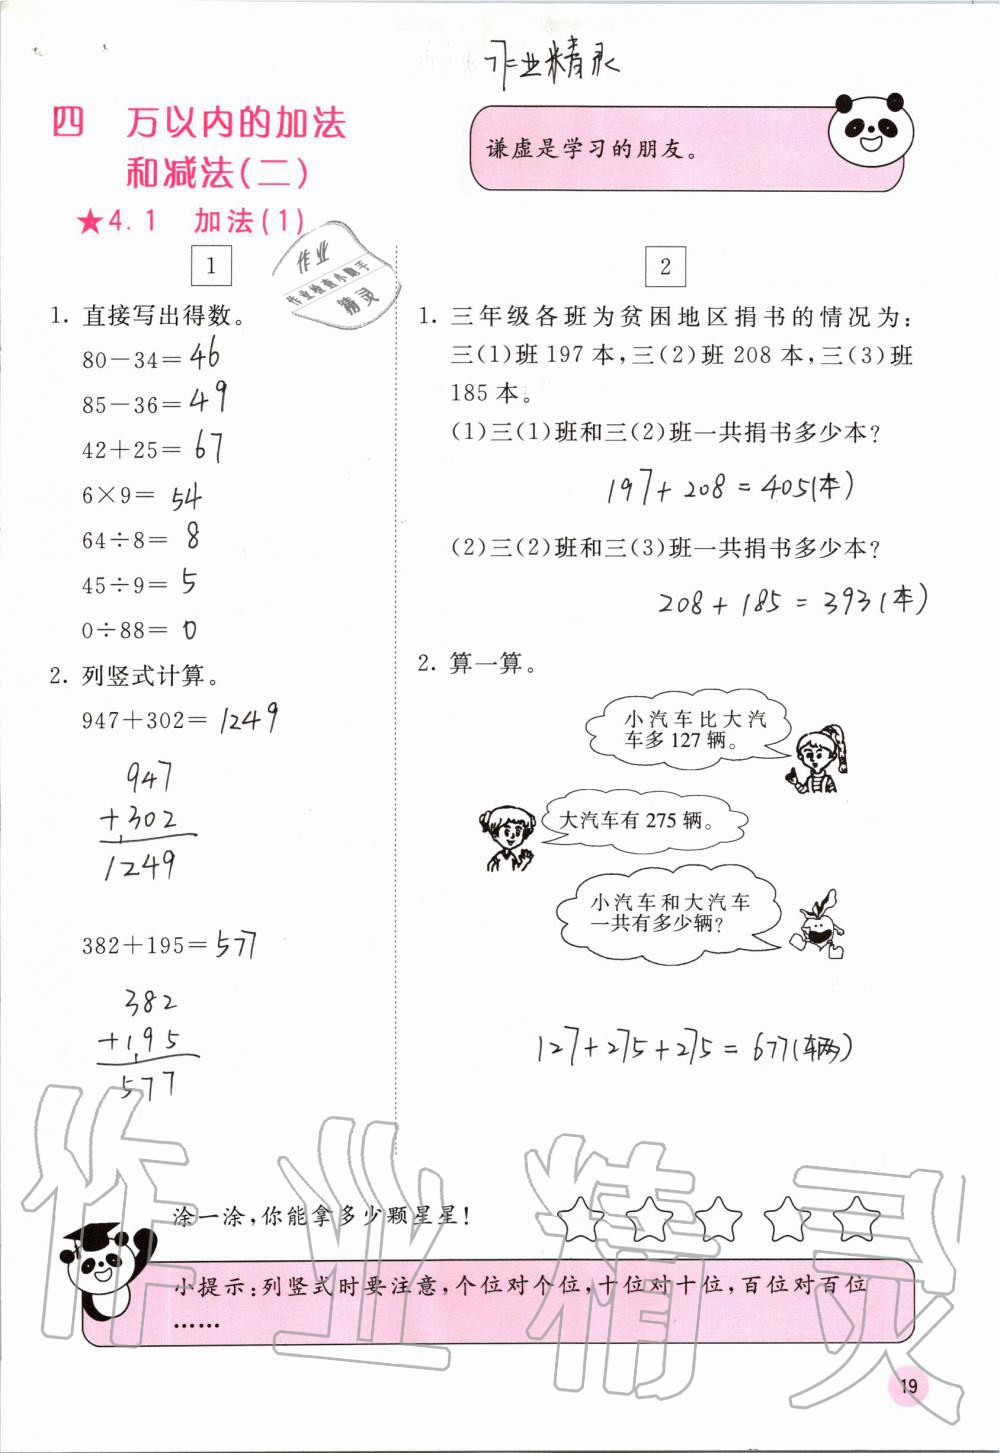 作业精灵
四 万以内的加法
和减法(二)
谦虚是学习的朋友。
★4.1 加法(1)
作业
作业检查小助手
精灵
1
1. 直接写出得数。
80－34＝46
85－36＝49
42＋25＝67
6×9＝54
64÷8＝8
45÷9＝5
0÷88＝0
2. 列竖式计算。
947＋302＝1249
947
+302
1249
382＋195＝577
382
+195
577
2
1. 三年级各班为贫困地区捐书的情况为:
三(1)班 197 本,三(2)班 208 本,三(3)班
185 本。
(1)三(1)班和三(2)班一共捐书多少本?
197+208=405(本)
(2)三(2)班和三(3)班一共捐书多少本?
208+185=393(本)
2. 算一算。
小汽车比大汽
车多 127 辆。
大汽车有 275 辆。
小汽车和大汽车
一共有多少辆?
127+275+275=677(辆)
涂一涂,你能拿多少颗星星!
小提示:列竖式时要注意,个位对个位,十位对十位,百位对百位
……
作业精灵
19